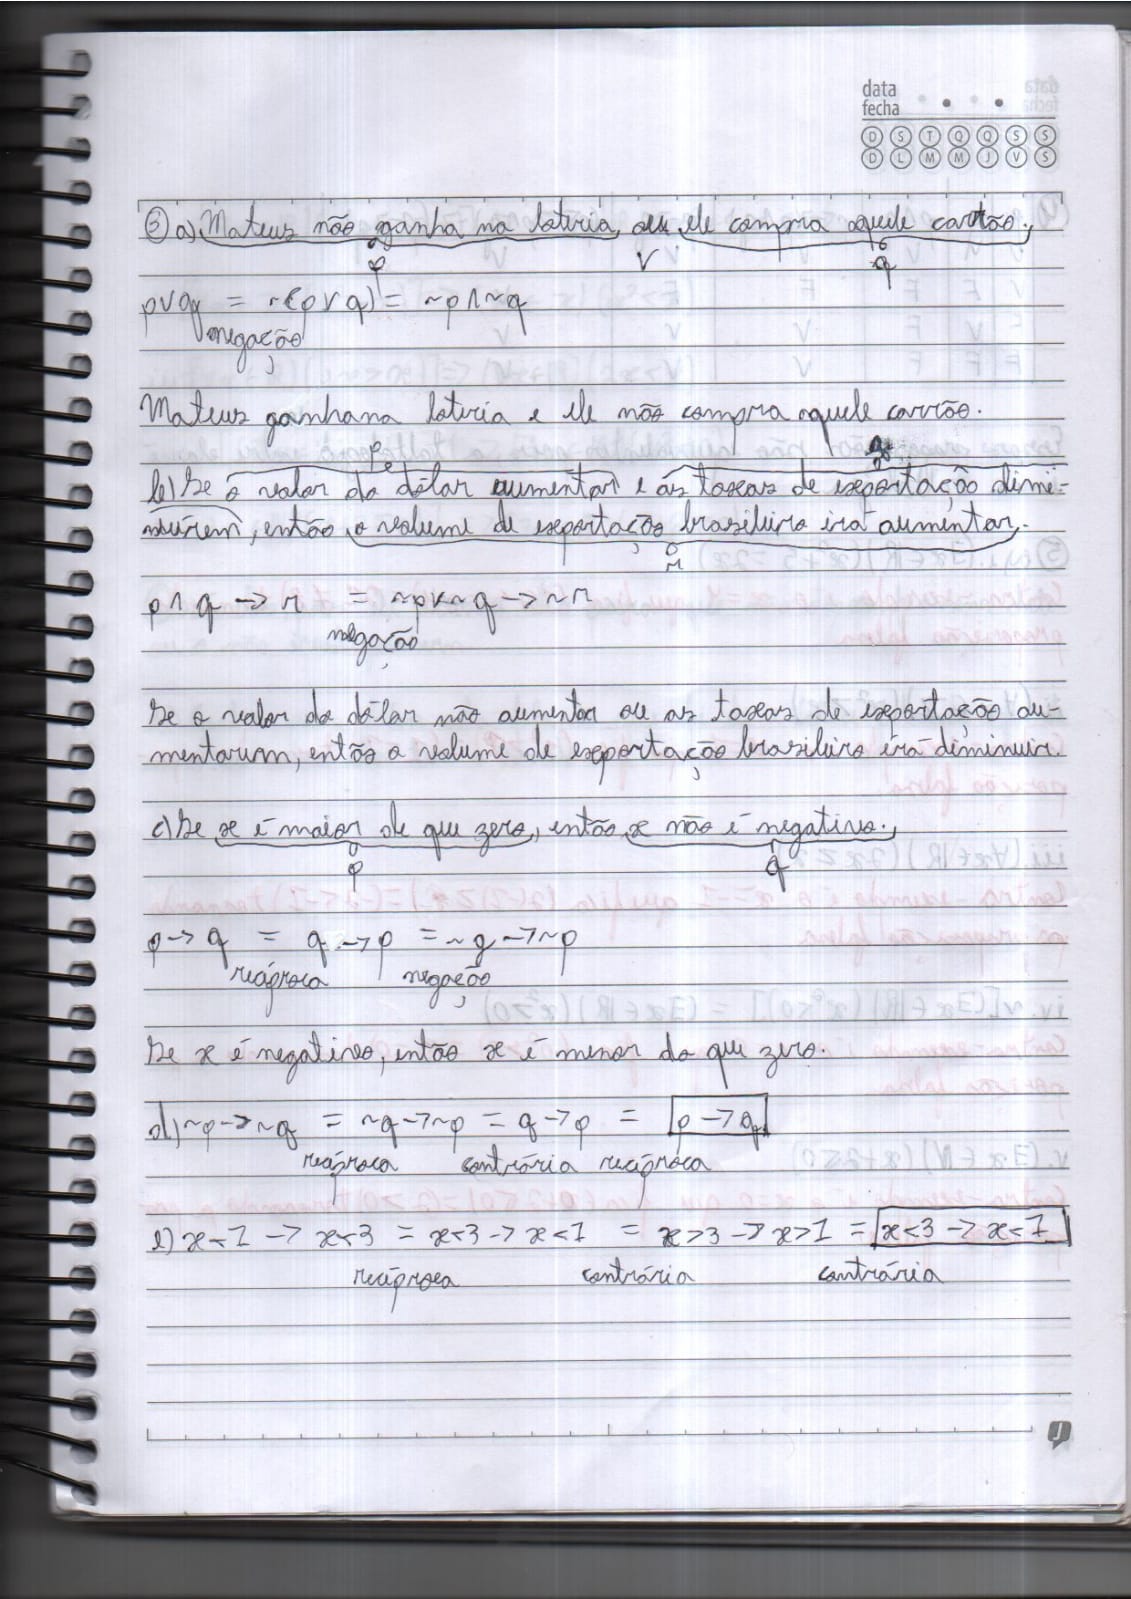 data
fecha
D S T Q Q S S
D L M M J V S
③ a) Mateus não ganha na loteria, ou ele compra aquele carrão.
p v q
p v q = ~(p v q) = ~p ∧ ~q
negação
Mateus ganha na loteria e ele não compra aquele carrão.
p q
b) Se o valor do dólar aumentar e as taxas de exportação dimi-
nuírem, então o volume de exportação brasileiro irá aumentar.
r
p ∧ q -> r = ~p v ~q -> ~r
negação
Se o valor do dólar não aumentar ou as taxas de exportação au-
mentarem, então o volume de exportação brasileiro irá diminuir.
c) Se x é maior do que zero, então x não é negativo.
p q
p -> q = q -> p = ~q -> ~p
recíproca negação
Se x é negativo, então x é menor do que zero.
d) ~p -> ~q = ~q -> ~p = q -> p = p -> q
recíproca contrária recíproca
e) x < 1 -> x < 3 = x < 3 -> x < 1 = x > 3 -> x > 1 = x < 3 -> x < 1
recíproca contrária contrária